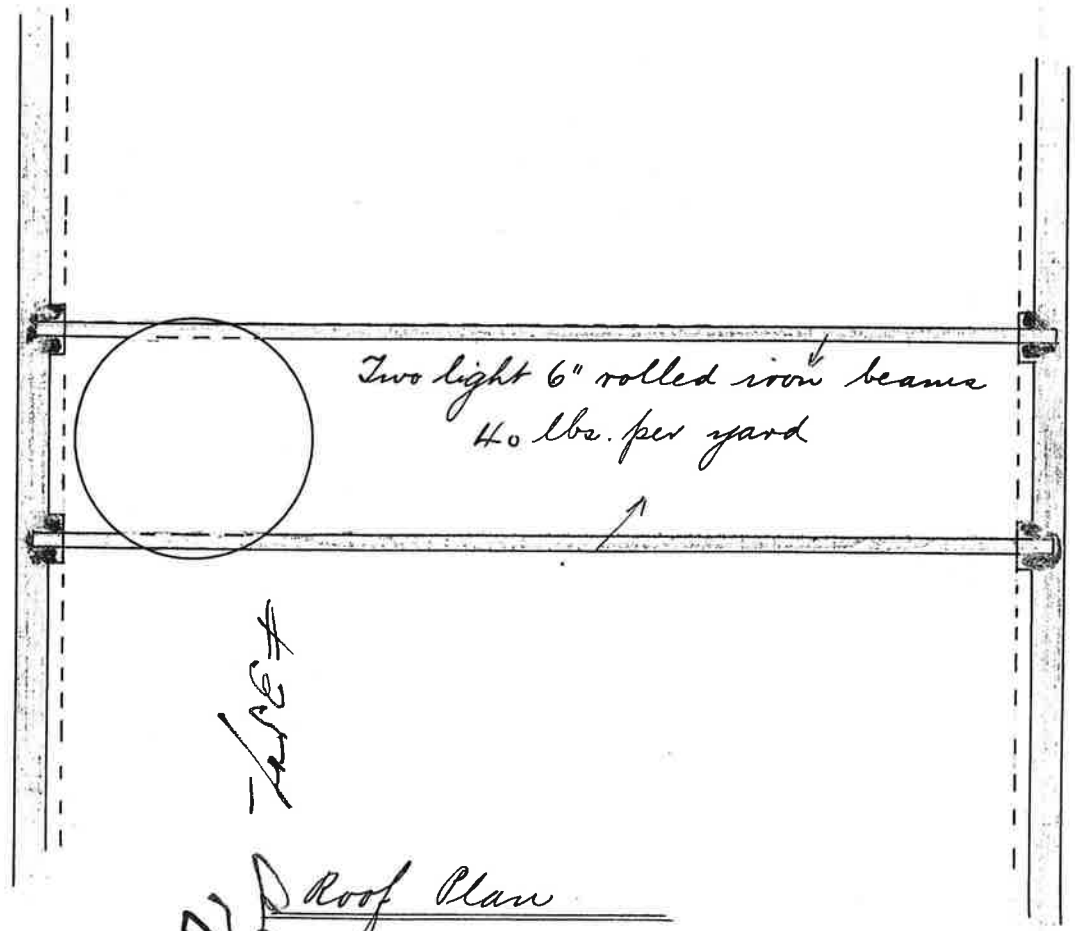 Two light 6" rolled iron beams
40 lbs. per yard
Roof Plan